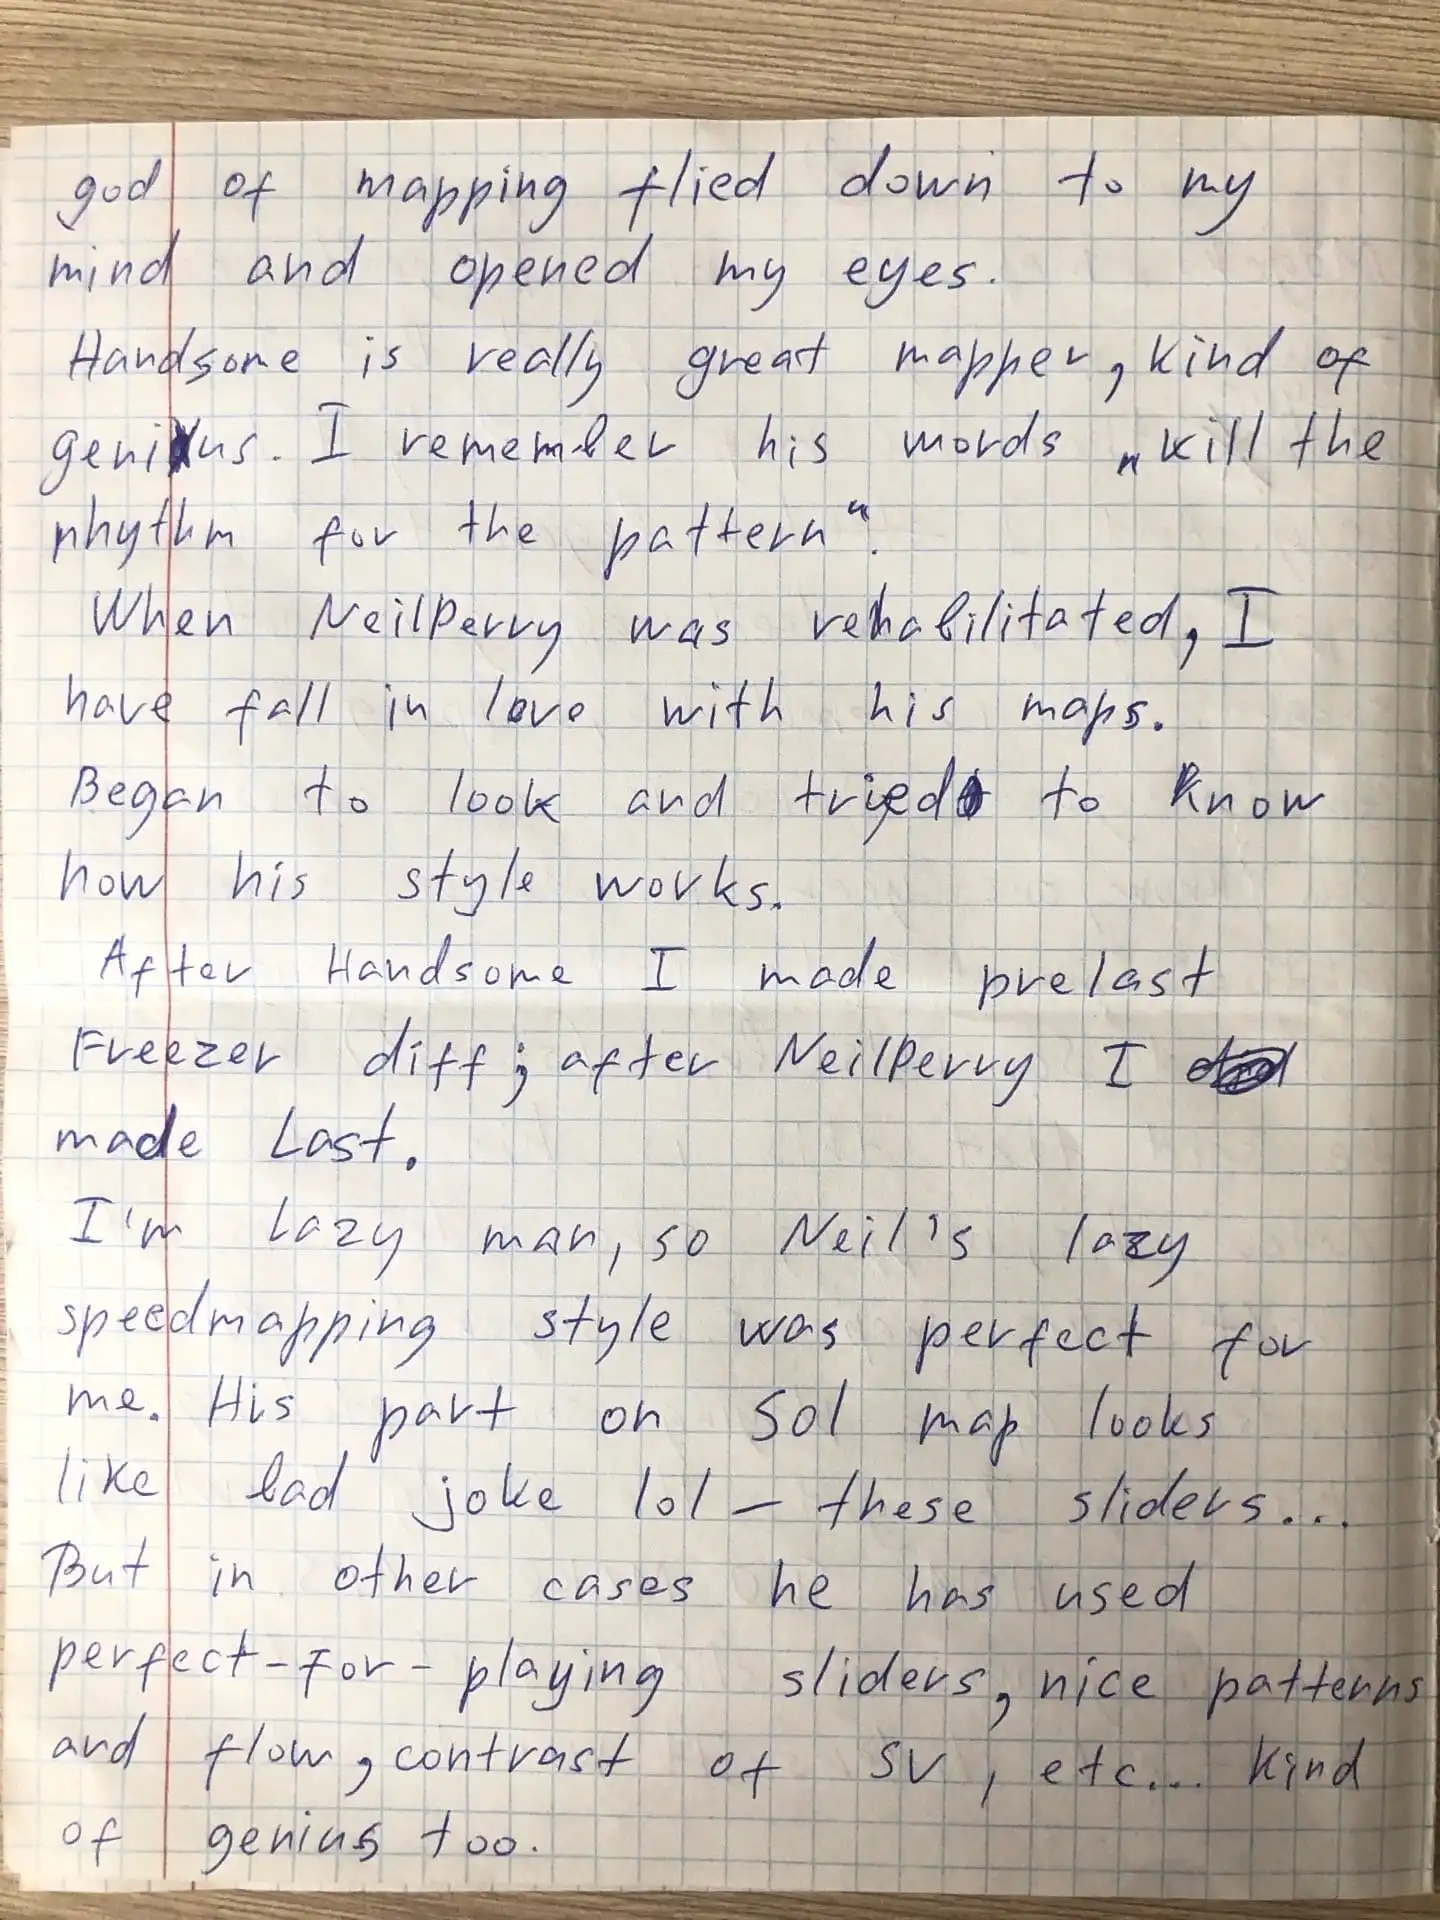 god of mapping flied down to my
mind and opened my eyes.
Handsome is really great mapper, kind of
genius. I remember his words „kill the
rhythm for the pattern“.
When NeilPerry was rehabilitated, I
have fall in love with his maps.
Began to look and tryed to know
how his style works.
After Handsome I made prelast
Freezer diff; after NeilPerry I
made Last.
I'm lazy man, so Neil's lazy
speedmapping style was perfect for
me. His part on Sol map looks
like bad joke lol – these sliders...
But in other cases he has used
perfect-for-playing sliders, nice patterns
and flow, contrast of SV, etc... kind
of genius too.